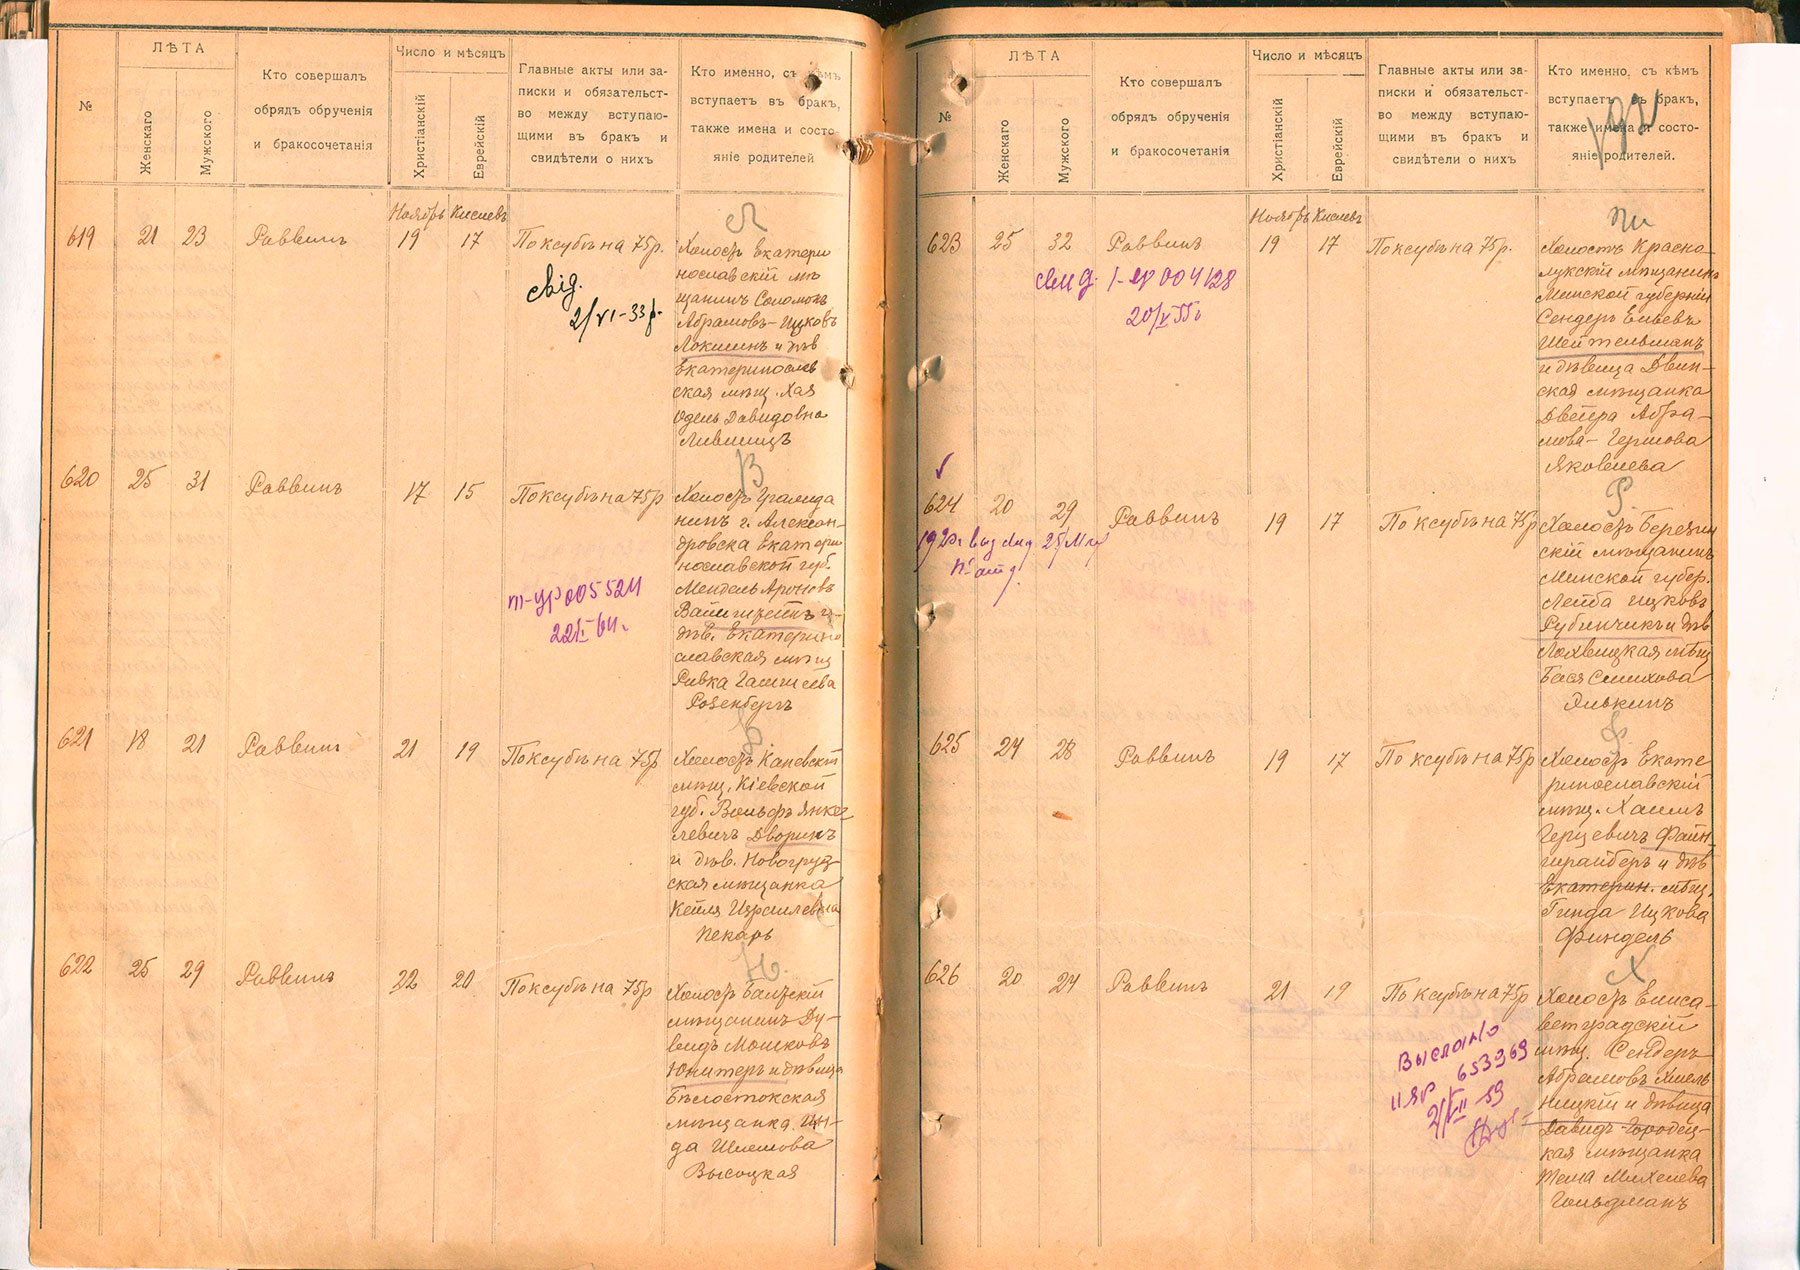 №
ЛѢТА
Женскаго
Мужского
Кто совершалъ
обрядъ обрученія
и бракосочетанія
Число и мѣсяцъ
Христіанскій
Еврейскій
Главные акты или за-
писки и обязательст-
во между вступаю-
щими въ бракъ и
свидѣтели о нихъ
Кто именно, съ кѣмъ
вступаетъ въ бракъ,
также имена и состо-
яніе родителей
Ноябрь Кислевъ
Л
619 21 23 Раввинъ 19 17 По ксубѣ на 75р.
свід.
2/VI-33р.
Холостъ Екатери
нославскій мѣ
щанинъ Соломонъ
Абрамовъ-Ицковъ
Локшинъ и дѣв
Екатеринослав
ская мѣщ. Хая
Одель Давидовна
Лившицъ
В
620 25 31 Раввинъ 17 15 По ксубѣ на 75р
III-УР 005524
Холостъ Гражда
нинъ г. Алексан-
дровска Екатери
нославской губ.
Мендель Ароновъ
Вайнштейнъ и
дѣв. Екатерино
славская мѣщ
Ривка
Розенбергъ
621 18 21 Раввинъ 21 19 По ксубѣ на 75р
Холостъ Каневскій
мѣщ. Кіевской
губ. Вольфъ Янке-
левичъ Дворинъ
и дѣв. Новогруд-
ская мѣщанка
Кейля Израилевна
Пекарь
622 25 29 Раввинъ 22 20 По ксубѣ на 75р
Холостъ Балтскій
мѣщанинъ Ду-
видъ Мошковъ
Юнитеръ и дѣвица
Бѣлостокская
мѣщанка
Высоцкая
192
№
ЛѢТА
Женскаго
Мужского
Кто совершалъ
обрядъ обрученія
и бракосочетанія
Число и мѣсяцъ
Христіанскій
Еврейскій
Главные акты или за-
писки и обязательст-
во между вступаю-
щими въ бракъ и
свидѣтели о нихъ
Кто именно, съ кѣмъ
вступаетъ въ бракъ,
также имена и состо-
яніе родителей.
Ноябрь Кислевъ
623 25 32 Раввинъ 19 17 По ксубѣ на 75р.
I-УР 004128
20/V 55г
Холостъ Красно-
лукскій мѣщанинъ
Минской губерніи
Сендеръ Ельевъ
Шейтельманъ
и дѣвица Двин-
ская мѣщанка
Двейра Абра-
мова-Гершова
Яковлева
Р.
624 20 29 Раввинъ 19 17 По ксубѣ на 75р
Холостъ Березин
скій мѣщанинъ
Минской губер.
Лейба Ицковъ
Рубинчикъ и дѣв
Лохвицкая мѣщ
Бася
625 24 28 Раввинъ 19 17 По ксубѣ на 75р
Ф
Холостъ Екате
ринославскій
мѣщ. Хаимъ
Герцевичъ Файн-
шрайберъ и дѣв
Екатерин. мѣщ.
Гинда Ицкова
Финдель
Х
626 20 24 Раввинъ 21 19 По ксубѣ на 75р
Выслано
II ЯР 653969
2/VII 59
Холостъ Елиса-
ветградскій
мѣщ. Сендеръ
Абрамовъ Хмель
ницкій и дѣвица
Давидъ-Городец-
кая мѣщанка
Михелева
Гольдманъ